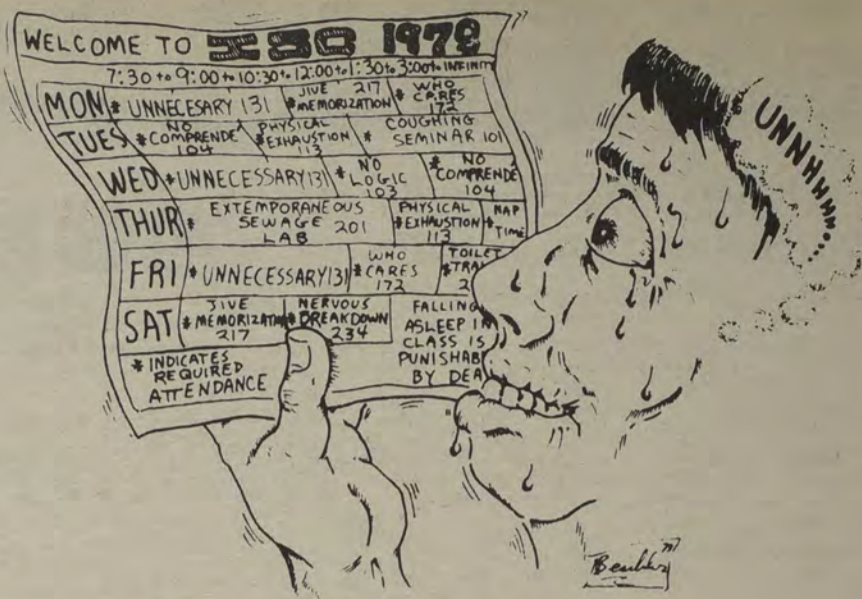 WELCOME TO ISC 1978
7:30 to 9:00 to 10:30 to 12:00 to 1:30 to 3:00 to INFINITY
MON * UNNECESARY 131 * JIVE 217 MEMORIZATION * WHO CARES 172
TUES * NO COMPRENDE 104 * PHYSICAL EXHAUSTION 113 * COUGHING SEMINAR 101
WED * UNNECESSARY 131 * NO LOGIC 103 * NO COMPRENDE 104
THUR * EXTEMPORANEOUS SEWAGE LAB 201 * PHYSICAL EXHAUSTION 113 * NAP TIME
FRI * UNNECESSARY 131 * WHO CARES 172 * TOILET TRAI 2
SAT * JIVE MEMORIZATION 217 * NERVOUS BREAKDOWN 234
FALLING
ASLEEP IN
CLASS IS
PUNISHAB
BY DEA
* INDICATES
REQUIRED
ATTENDANCE
UNNHHHH...